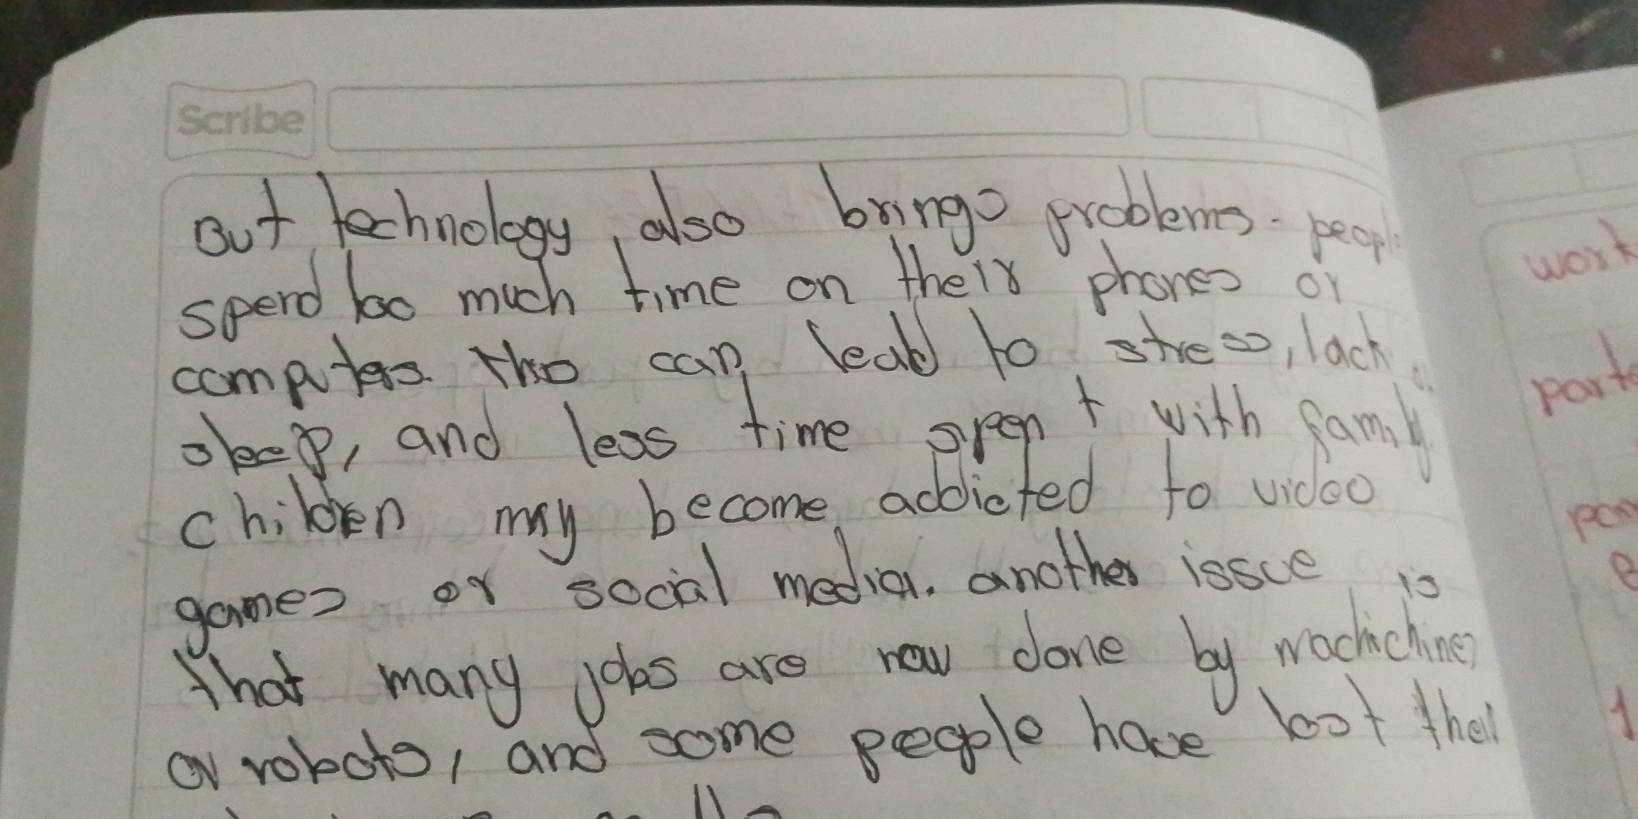 Scribe
But technology, also brings problems. people
spend too much time on their phones or
computers. this can lead to stress, lack of
sleep, and less time spent with family
children may become addicted to video
games or social media. another issue is
that many jobs are now done by machichines
or robots, and some people have lost their
work
parts
1